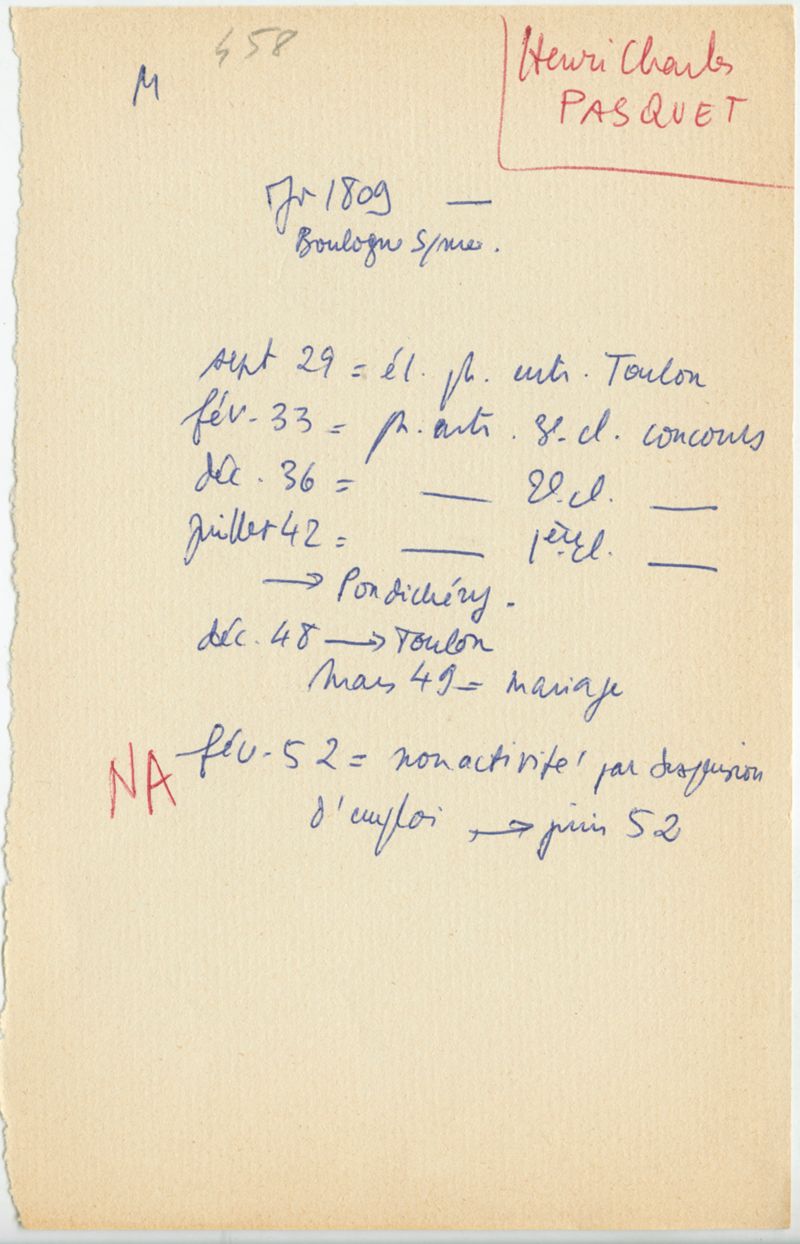 M
458
Henri Charles
PASQUET
1809 —
Boulogne s/mer.
sept 29 = él. ph. entr. Toulon
fév. 33 = ph. entr. 3e. cl. concours
déc. 36 = — 2e. cl. —
juillet 42 = — 1ère cl. —
→ Pondichéry.
déc. 48 → Toulon
mars 49 = mariage
NA
fév. 52 = nonactivité par suspension
d'emploi → juin 52